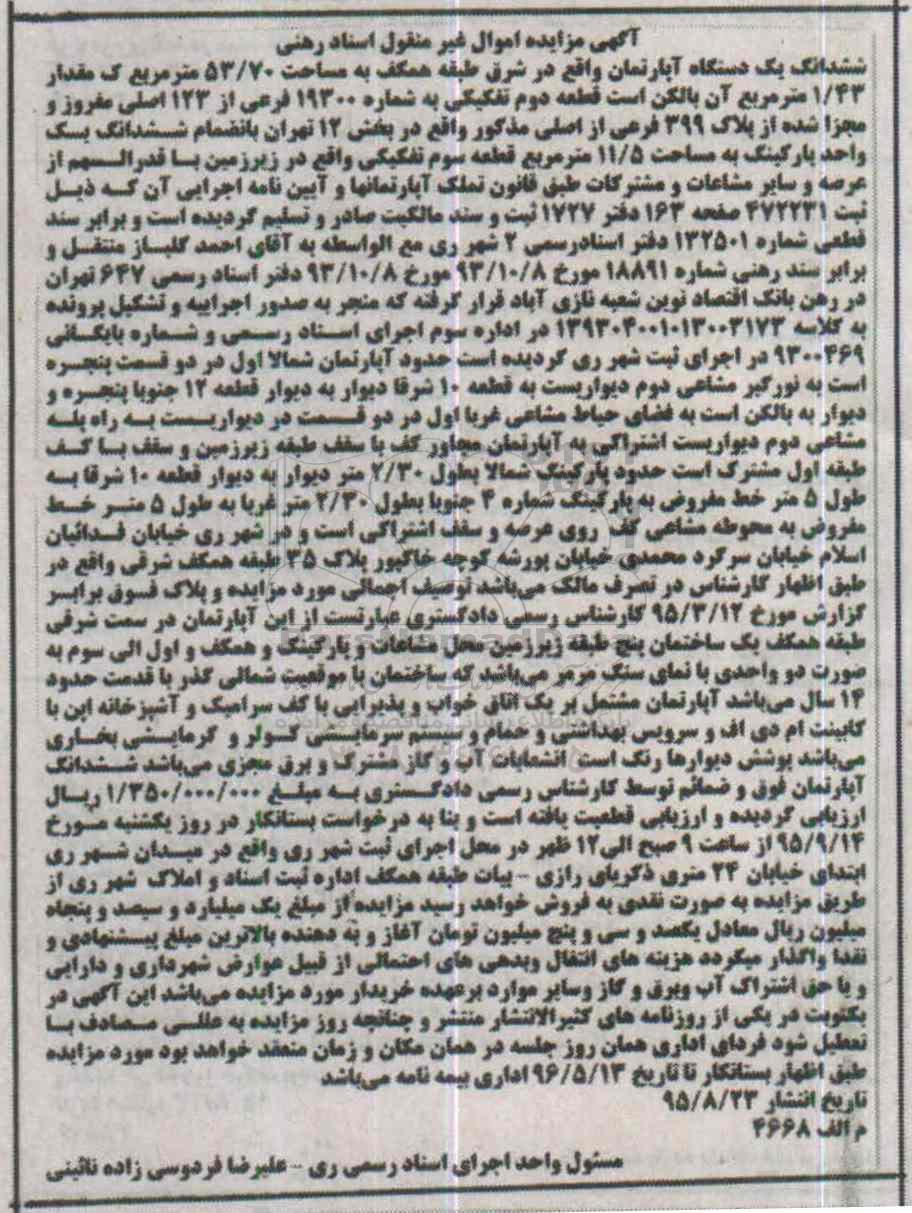 آگهی مزایده اموال غیر منقول اسناد رهنی
ششدانگ یک دستگاه آپارتمان واقع در شرق طبقه همکف به مساحت ۵۳/۷۰ مترمربع ک مقدار
۱/۴۳ مترمربع آن بالکن است قطعه دوم تفکیکی به شماره ۱۹۳۰۰ فرعی از ۱۲۳ اصلی مفروز و
مجزا شده از پلاک ۳۹۹ فرعی از اصلی مذکور واقع در بخش ۱۲ تهران بانضمام ششدانگ یک
واحد پارکینگ به مساحت ۱۱/۵ مترمربع قطعه سوم تفکیکی واقع در زیرزمین با قدرالسهم از
عرصه و سایر مشاعات و مشترکات طبق قانون تملک آپارتمانها و آیین نامه اجرایی آن که ذیل
ثبت ۴۷۲۲۳۱ صفحه ۱۶۳ دفتر ۱۷۲۷ ثبت و سند مالکیت صادر و تسلیم گردیده است و برابر سند
قطعی شماره ۱۳۲۵۰۱ دفتر اسنادرسمی ۲ شهر ری مع الواسطه به آقای احمد گلباز منتقل و
برابر سند رهنی شماره ۱۸۸۹۱ مورخ ۹۳/۱۰/۸ مورخ ۹۳/۱۰/۸ دفتر اسناد رسمی ۶۴۷ تهران
در رهن بانک اقتصاد نوین شعبه نازی آباد قرار گرفته که منجر به صدور اجراییه و تشکیل پرونده
به کلاسه ۱۳۹۳۰۴۰۰۱۰۱۳۰۰۳۱۷۳ در اداره سوم اجرای اسناد رسمی و شماره بایگانی
۹۳۰۰۴۶۹ در اجرای ثبت شهر ری گردیده است حدود آپارتمان شمالا اول در دو قسمت پنجره
است به نورگیر مشاعی دوم دیواریست به قطعه ۱۰ شرقا دیوار به دیوار قطعه ۱۲ جنوبا پنجره و
دیوار به بالکن است به فضای حیاط مشاعی غربا اول در دو قسمت در دیواریست به راه پله
مشاعی دوم دیواریست اشتراکی به آپارتمان مجاور کف با سقف طبقه زیرزمین و سقف با کف
طبقه اول مشترک است حدود پارکینگ شمالا بطول ۲/۳۰ متر دیوار به دیوار قطعه ۱۰ شرقا به
طول ۵ متر خط مفروض به پارکینگ شماره ۴ جنوبا بطول ۲/۳۰ متر غربا به طول ۵ متر خط
مفروض به محوطه مشاعی کف روی عرصه و سقف اشتراکی است و در شهر ری خیابان فدائیان
اسلام خیابان سرگرد محمدی خیابان پورشه کوچه خاکپور پلاک ۳۵ طبقه همکف شرقی واقع در
طبق اظهار کارشناس در تصرف مالک می‌باشد توصیف اجمالی مورد مزایده و پلاک فوق برابر
گزارش مورخ ۹۵/۳/۱۲ کارشناس رسمی دادگستری عبارتست از این آپارتمان در سمت شرقی
طبقه همکف یک ساختمان پنج طبقه زیرزمین محل مشاعات و پارکینگ و همکف و اول الی سوم به
صورت دو واحدی با نمای سنگ مرمر می‌باشد که ساختمان با موقعیت شمالی گذر با قدمت حدود
۱۴ سال می‌باشد آپارتمان مشتمل بر یک اتاق خواب و پذیرایی با کف سرامیک و آشپزخانه اپن با
کابینت ام دی اف و سرویس بهداشتی و حمام و سیستم سرمایشی کولر و گرمایشی بخاری
می‌باشد پوشش دیوارها رنگ است انشعابات آب و گاز مشترک و برق مجزی می‌باشد ششدانگ
آپارتمان فوق و ضمائم توسط کارشناس رسمی دادگستری به مبلغ ۱/۳۵۰/۰۰۰/۰۰۰ ریال
ارزیابی گردیده و ارزیابی قطعیت یافته است و بنا به درخواست بستانکار در روز یکشنبه مورخ
۹۵/۹/۱۴ از ساعت ۹ صبح الی۱۲ ظهر در محل اجرای ثبت شهر ری واقع در میدان شهر ری
ابتدای خیابان ۲۴ متری ذکریای رازی - بیات طبقه همکف اداره ثبت اسناد و املاک شهر ری از
طریق مزایده به صورت نقدی به فروش خواهد رسید مزایده از مبلغ یک میلیارد و سیصد و پنجاه
میلیون ریال معادل یکصد و سی و پنج میلیون تومان آغاز و به دهنده بالاترین مبلغ پیشنهادی و
نقدا واگذار میگردد هزینه های انتقال وبدهی های احتمالی از قبیل عوارض شهرداری و دارایی
و یا حق اشتراک آب وبرق و گاز وسایر موارد برعهده خریدار مورد مزایده می‌باشد این آگهی در
یکنوبت در یکی از روزنامه های کثیرالانتشار منتشر و چنانچه روز مزایده به عللی مصادف با
تعطیل شود فردای اداری همان روز جلسه در همان مکان و زمان منعقد خواهد بود مورد مزایده
طبق اظهار بستانکار تا تاریخ ۹۶/۵/۱۳ اداری بیمه نامه می‌باشد
تاریخ انتشار ۹۵/۸/۲۳
م الف ۴۶۶۸
مسئول واحد اجرای اسناد رسمی ری - علیرضا فردوسی زاده نائینی